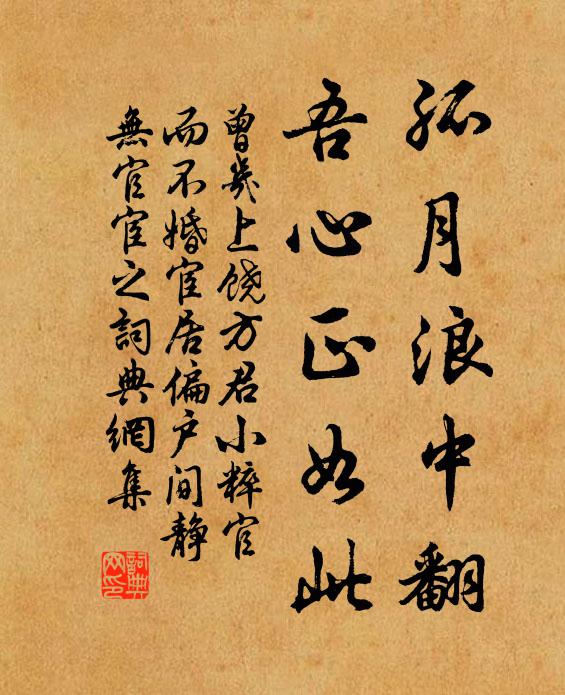 孤月浪中翻
吾心正如此
曾幾上饶方君小粹官
而不婚宦居偏户间静
無官宦之詞典網集
詞典
网印